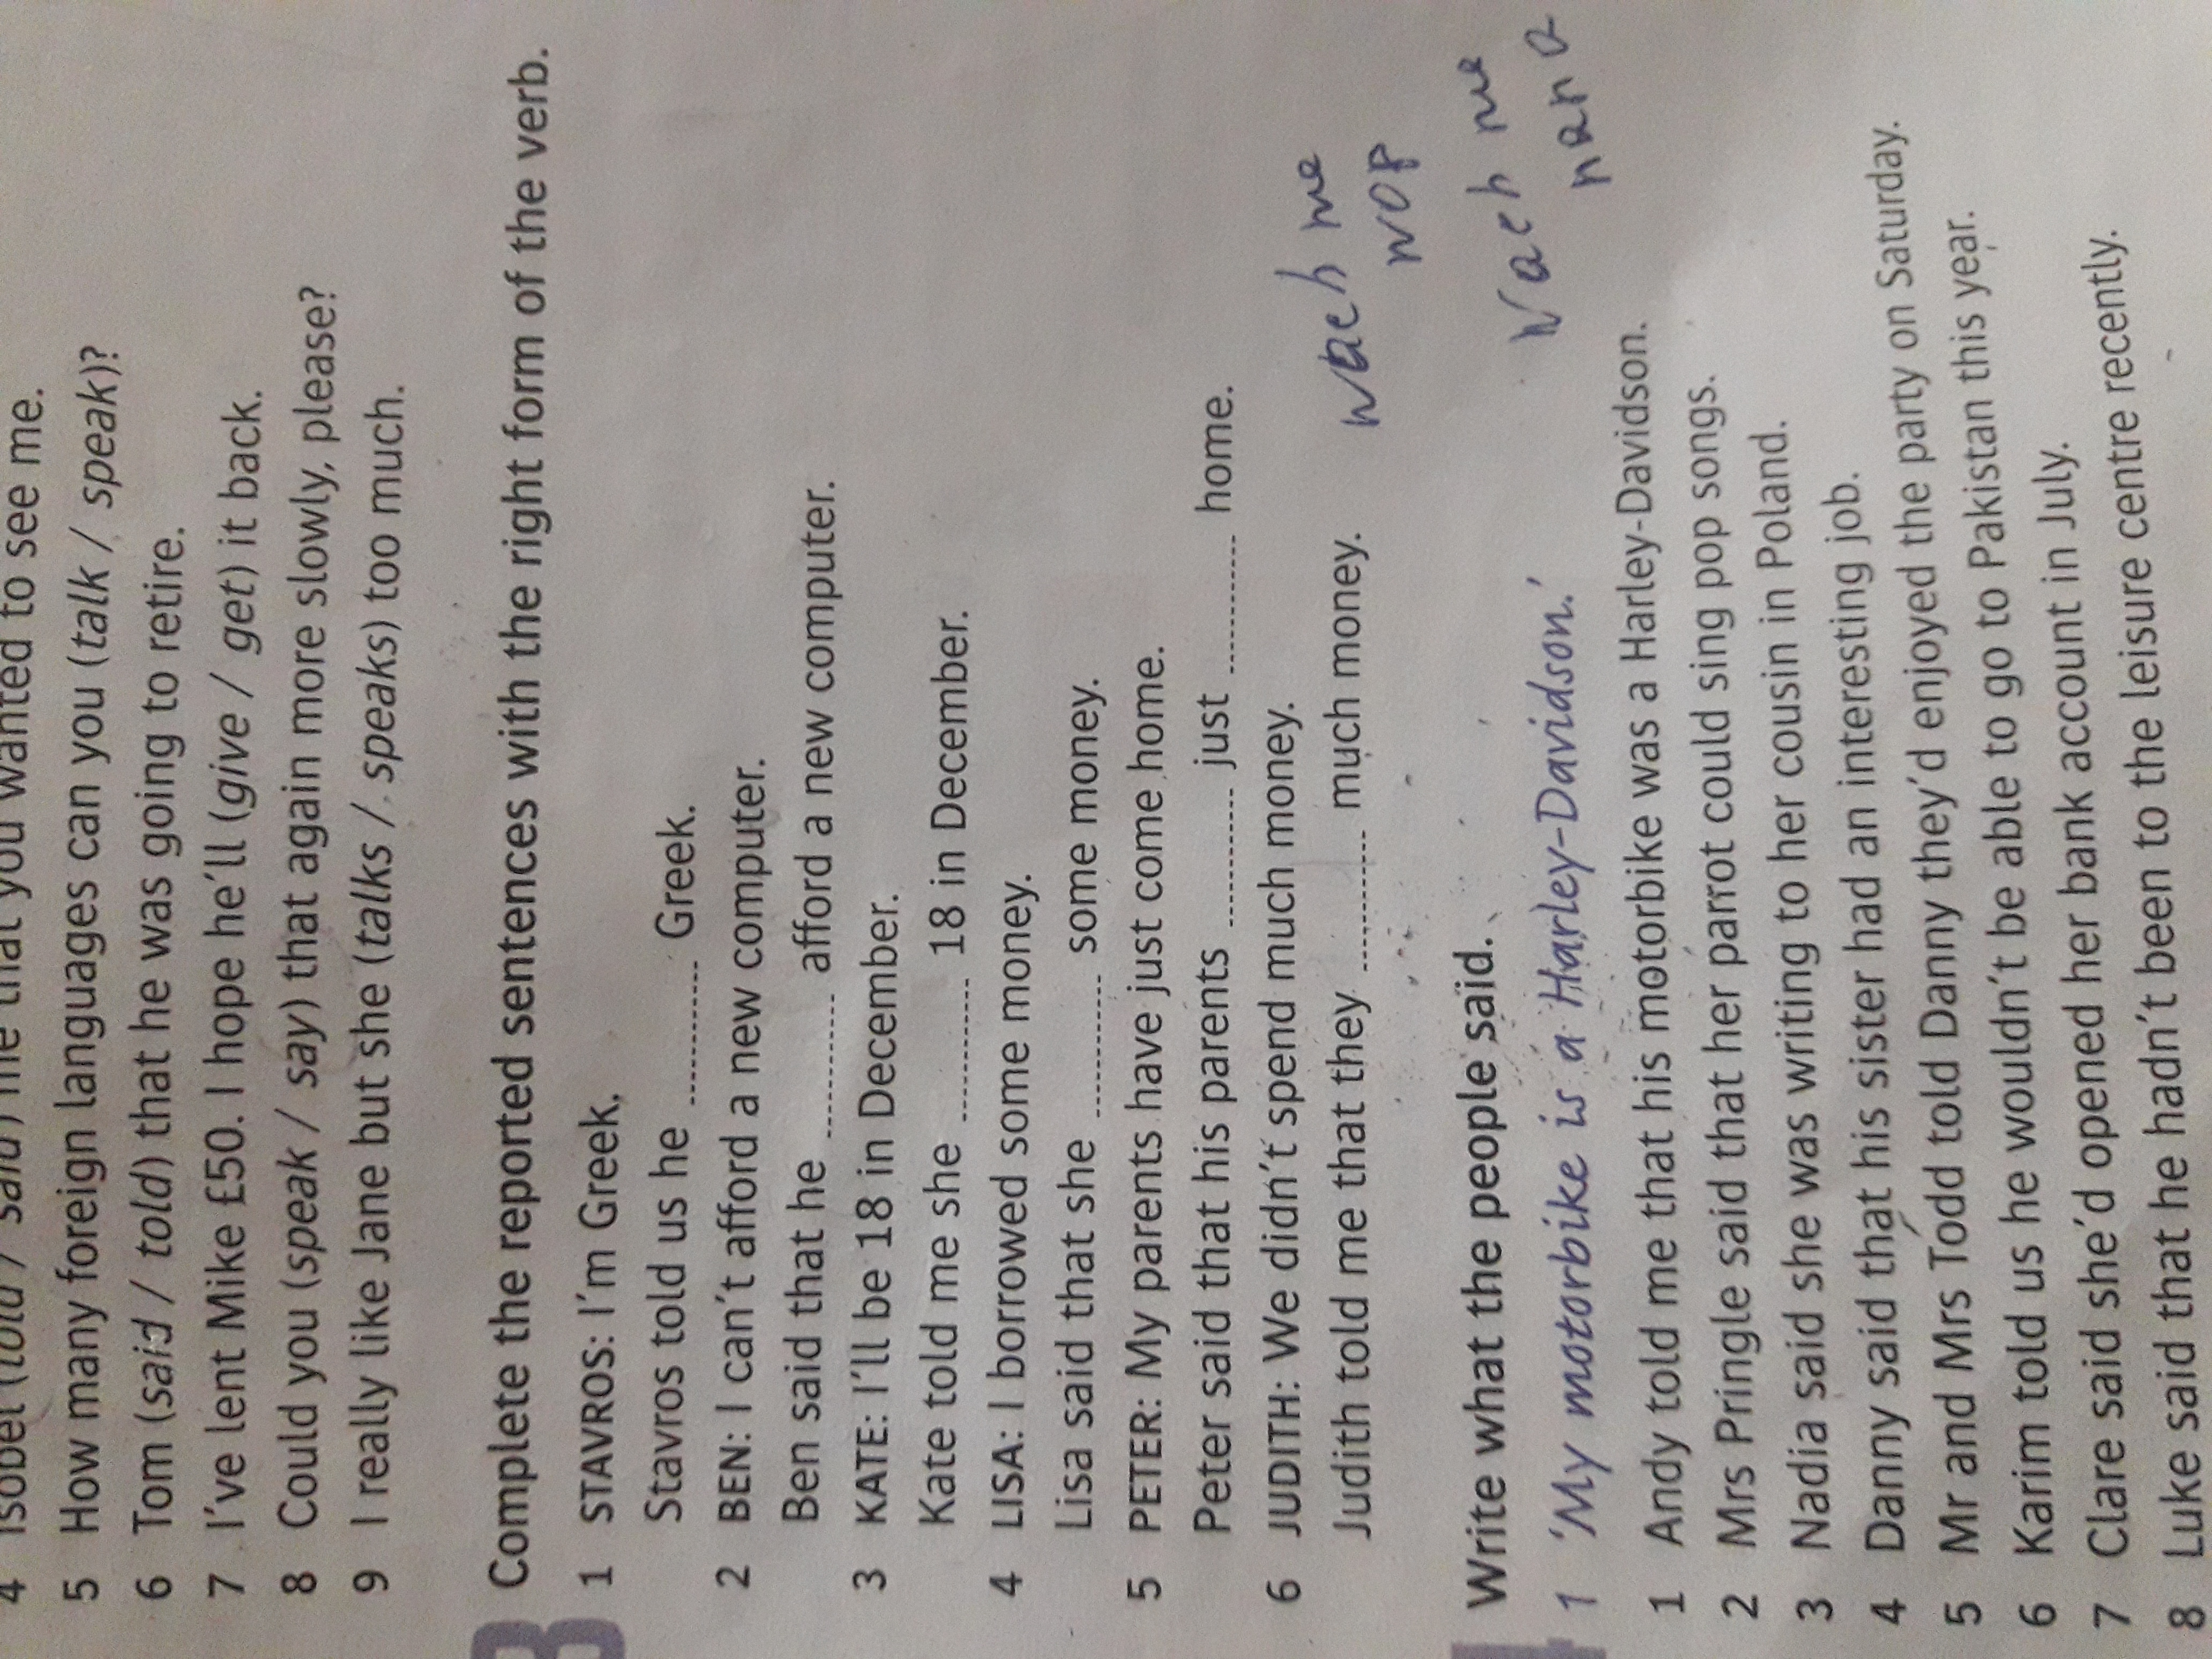 4 Isobel (told / said) me that you wanted to see me.
5 How many foreign languages can you (talk / speak)?
6 Tom (said / told) that he was going to retire.
7 I've lent Mike £50. I hope he'll (give / get) it back.
8 Could you (speak / say) that again more slowly, please?
9 I really like Jane but she (talks / speaks) too much.
Complete the reported sentences with the right form of the verb.
1 STAVROS: I'm Greek.
Stavros told us he ............ Greek.
2 BEN: I can't afford a new computer.
Ben said that he ............ afford a new computer.
3 KATE: I'll be 18 in December.
Kate told me she ............ 18 in December.
4 LISA: I borrowed some money.
Lisa said that she ............ some money.
5 PETER: My parents have just come home.
Peter said that his parents ............ just ............ home.
6 JUDITH: We didn't spend much money.
Judith told me that they ............ much money.
Write what the people said.
1 'My motorbike is a Harley-Davidson.'
1 Andy told me that his motorbike was a Harley-Davidson.
2 Mrs Pringle said that her parrot could sing pop songs.
3 Nadia said she was writing to her cousin in Poland.
4 Danny said that his sister had an interesting job.
5 Mr and Mrs Todd told Danny they'd enjoyed the party on Saturday.
6 Karim told us he wouldn't be able to go to Pakistan this year.
7 Clare said she'd opened her bank account in July.
8 Luke said that he hadn't been to the leisure centre recently.